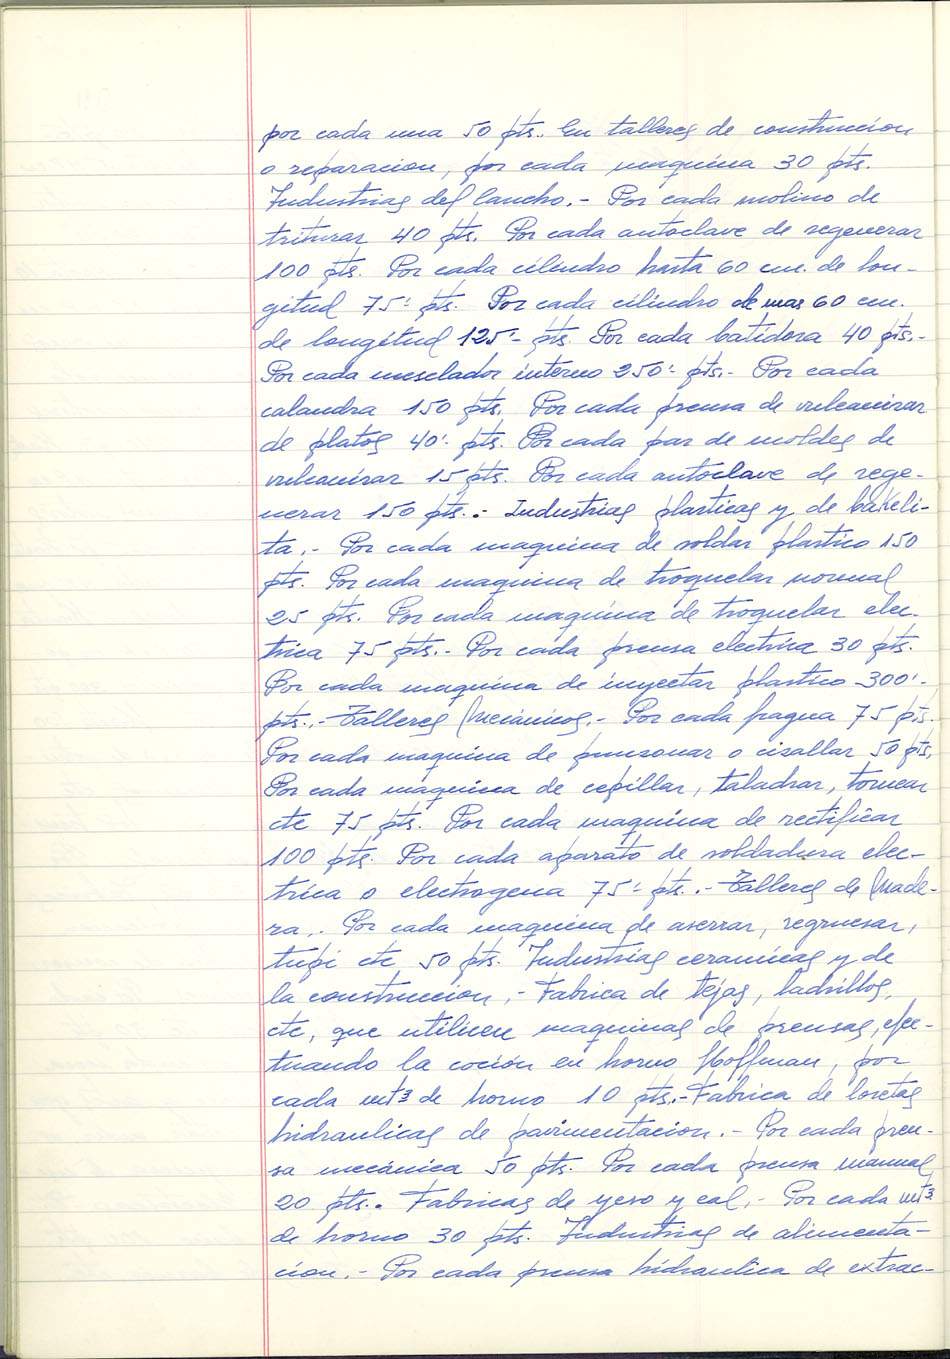 por cada una 50 pts. En talleres de construccion
o reparacion, por cada maquina 30 pts.
Industrias del Caucho.- Por cada molino de
triturar 40 pts. Por cada autoclave de regenerar
100 pts. Por cada cilindro hasta 60 cm. de lon-
gitud 75'- pts. Por cada cilindro de mas 60 cm.
de longitud 125'- pts. Por cada batidora 40 pts.-
Por cada mesclador interno 250'- pts.- Por cada
calandra 150 pts. Por cada prensa de vulcanizar
de platos 40'- pts. Por cada par de moldes de
vulcanizar 15 pts. Por cada autoclave de rege-
nerar 150 pts..- Industrias plasticas y de bakeli-
ta.- Por cada maquina de soldar plastico 150
pts. Por cada maquina de troquelar normal
25 pts. Por cada maquina de troquelar elec-
trica 75 pts.- Por cada prensa electrica 30 pts.
Por cada maquina de inyectar plastico 300'-
pts.- Talleres Mecánicos.- Por cada fragua 75 pts.
Por cada maquina de punsonar o cisallar 50 pts,
Por cada maquina de cepillar, taladrar, tornear
etc 75 pts. Por cada maquina de rectificar
100 pts. Por cada aparato de soldadura elec-
trica o electrogena 75'- pts..- Talleres de Made-
ra,. Por cada maquina de aserrar, regruesar,
tupi etc 50 pts. Industrias ceramicas y de
la construccion,- Fabrica de tejas, ladrillos,
etc, que utilicen maquinas de prensas, efec-
tuando la coción en horno Hoffman, por
cada mt3 de horno 10 pts.- Fabrica de losetas
hidraulicas de pavimentacion.- Por cada pren-
sa mecánica 50 pts. Por cada prensa manual
20 pts.. Fabricas de yeso y cal,- Por cada mt3
de horno 30 pts. Industrias de alimenta-
cion.- Por cada prensa hidraulica de extrac-